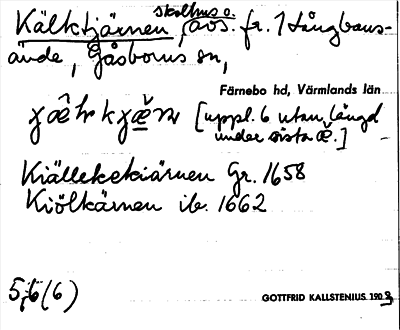 skolhus o.
Kälktjärnen, avs. fr. 1 Långbans-
ände, Gåsborns sn,
Färnebo hd, Värmlands län
[uppl. 6 utan längd
under sista æ̌.]
Kiällekekiärnen Gr. 1658
Kiölkärnen ib. 1662
5,6 (6)
GOTTFRID KALLSTENIUS 190